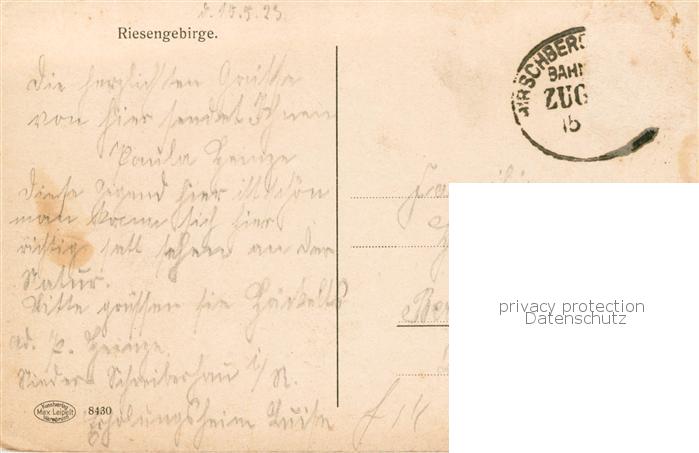 d. 15.5.23.
Riesengebirge.
Die herzlichsten Grüße
von hier sendet Ihnen
Paula Heinze
Diese Gegend hier ist schön
man kann sich hier
richtig satt sehen an der
Natur.
Bitte grüssen sie
ad. P. Heinze.
Nieder Schreiberhau i/R.
Erholungsheim Luise
Kunstverlag
Max Leipelt
Warmbrunn
8430
HIRSCHBERG
BAHN
ZUG
15
Ber
privacy protection
Datenschutz